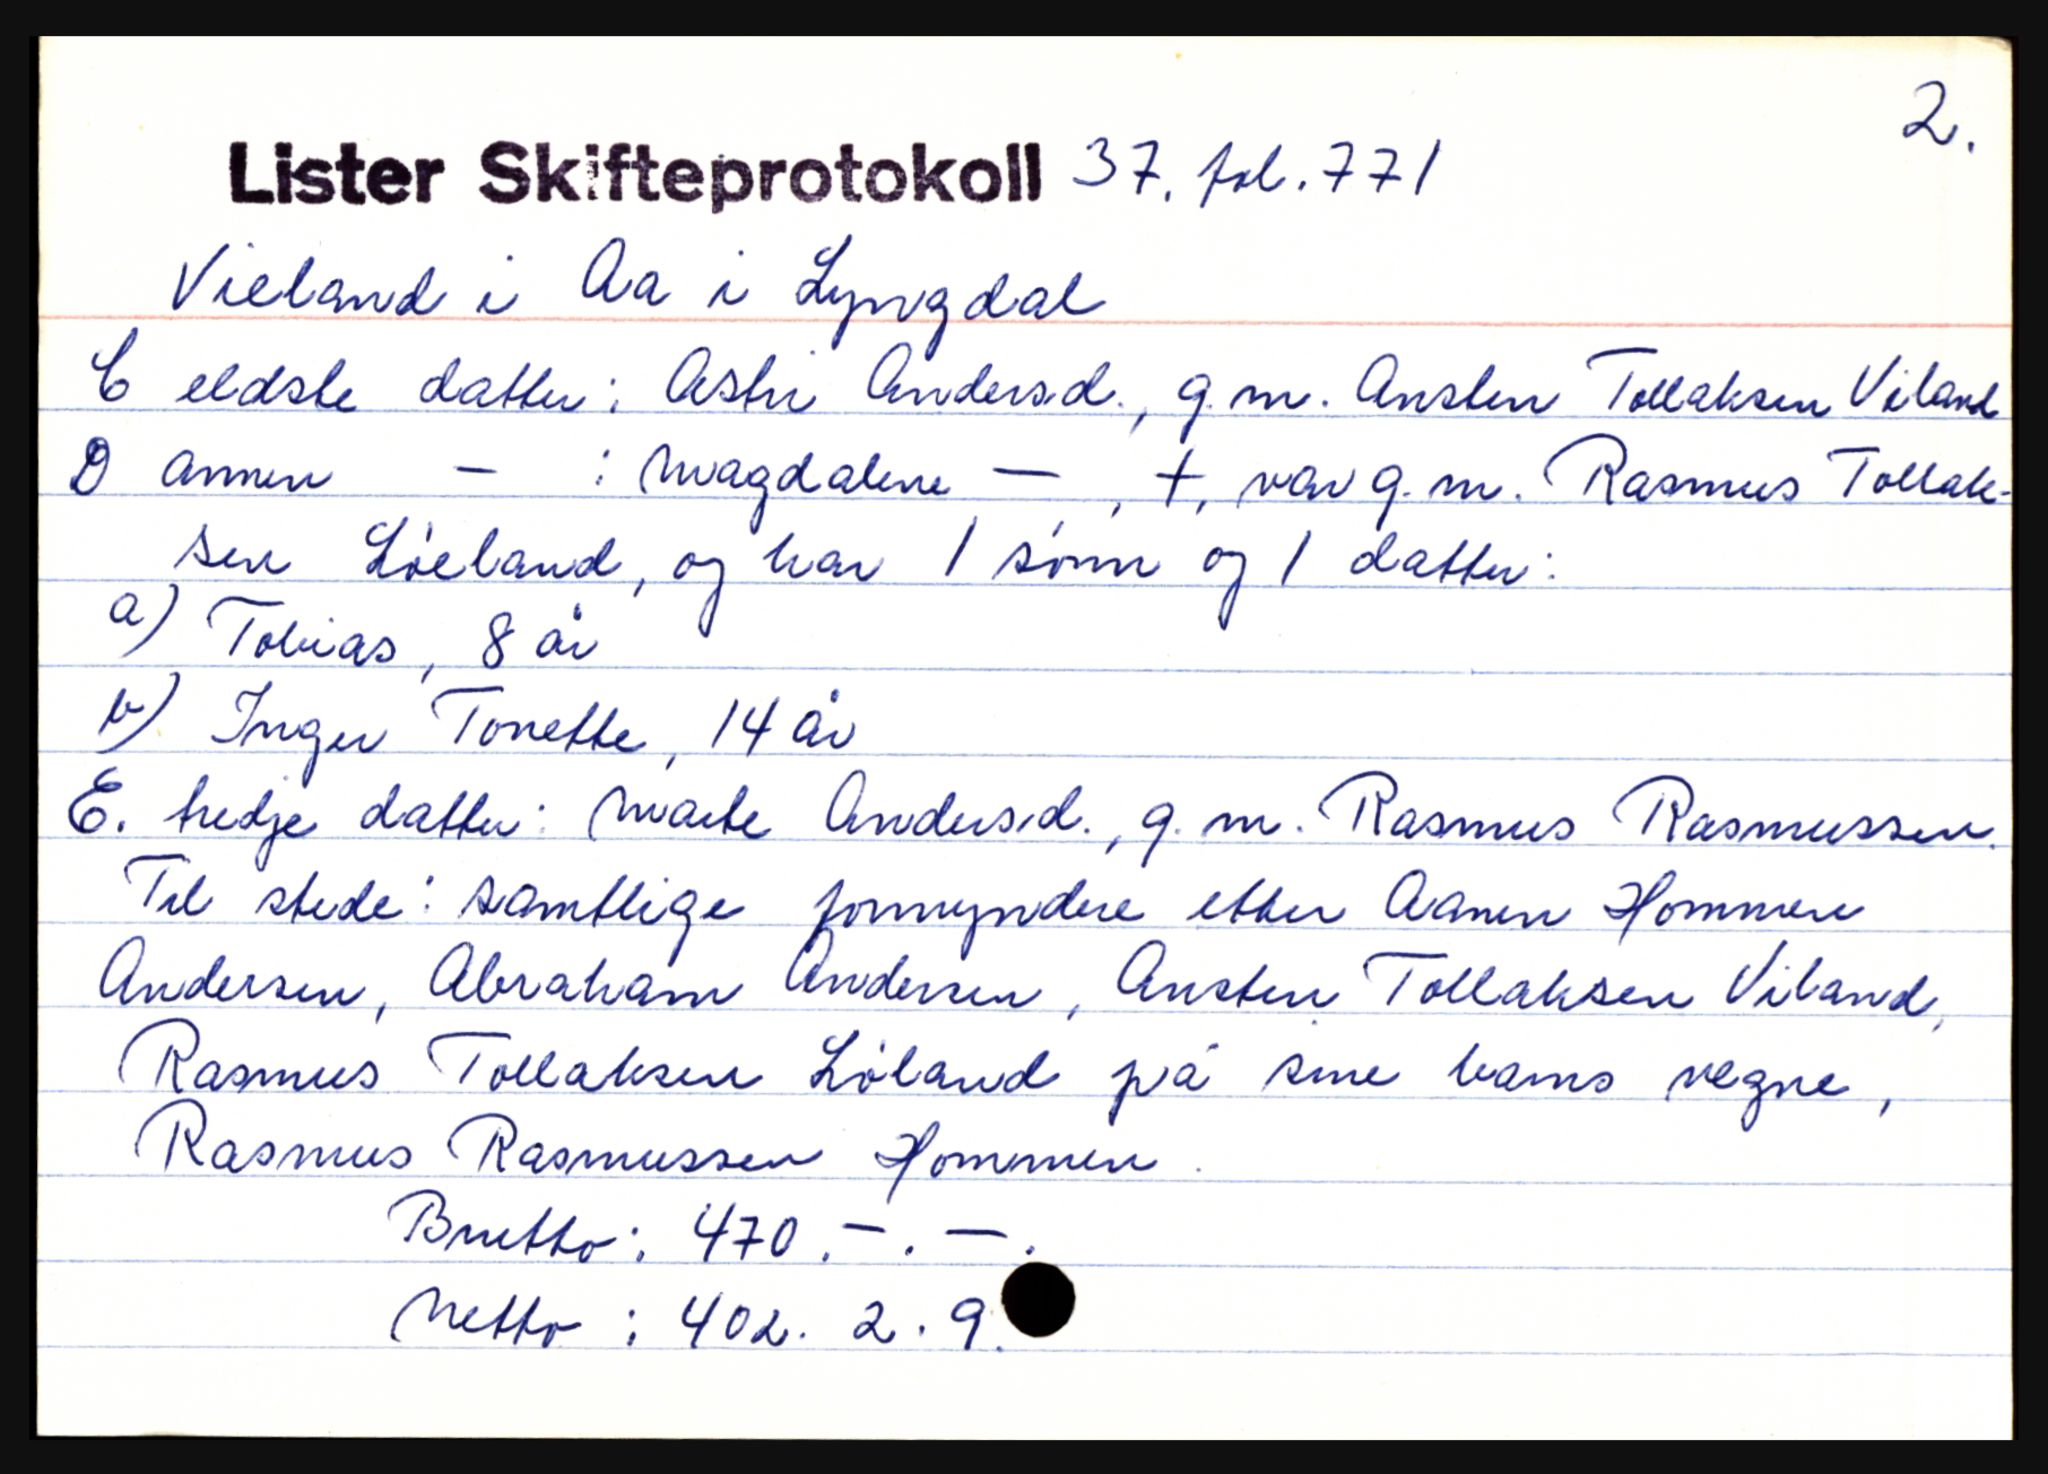 2.
Lister Skifteprotokoll 37. fol. 771
Vieland i Aa i Lyngdal
C eldste datter: Astri Andersd., g.m. Ansten Tollaksen Viland
D annen — : Magdalene —, +, var g.m. Rasmus Tollak-
sen Löeland, og har 1 sönn og 1 datter:
a) Tobias, 8 år
b) Inger Tonette, 14 år
E. tredje datter: Marte Andersd., g.m. Rasmus Rasmussen.
Til stede: samtlige formyndere etter Aanen Hommen
Andersen, Abraham Andersen, Ansten Tollaksen Viland,
Rasmus Tollaksen Löland på sine barns vegne,
Rasmus Rasmussen Hommen.
Brutto: 470.—.—.
Netto: 402. 2. 9.